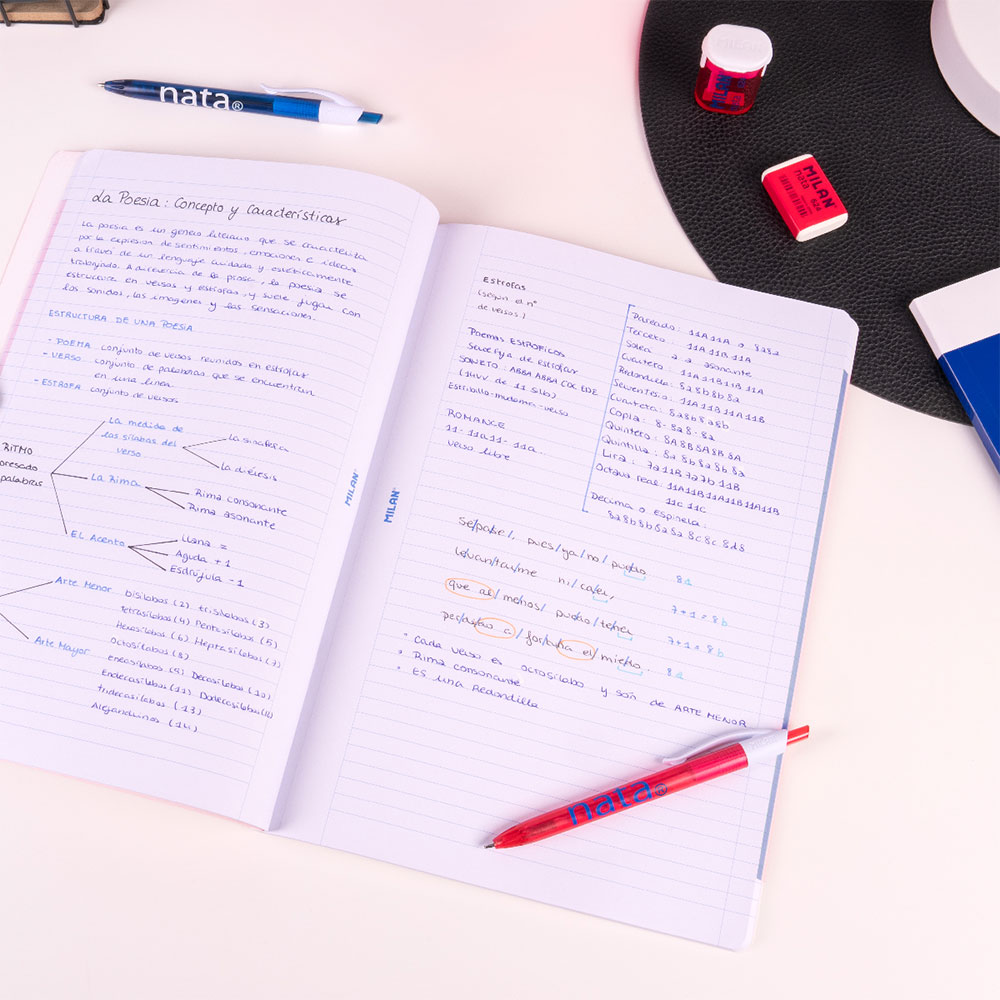 nata®
MILAN
MILAN
nata 624
La Poesía: Concepto y Características
La poesía es un género literario que se caracteriza
por la expresión de sentimientos, emociones e ideas
a través de un lenguaje cuidado y estéticamente
trabajado. A diferencia de la prosa, la poesía se
estructura en versos y estrofas, y suele jugar con
los sonidos, las imágenes y las sensaciones.
ESTRUCTURA DE UNA POESIA
- POEMA conjunto de versos reunidos en estrofas
- VERSO conjunto de palabras que se encuentran
en una línea
- ESTROFA conjunto de versos
RITMO
presado
palabras
La medida de
las sílabas del
verso
La sinalefa
La diéresis
La Rima
Rima consonante
Rima asonante
EL Acento
Llana =
Aguda +1
Esdrújula -1
Arte Menor
bisílabos (2) trisílabos (3)
tetrasílabos (4) Pentasílabos (5)
Hexasílabos (6) Heptasílabos (7)
Octosílabos (8)
Arte Mayor
eneasílabos (9) Decasílabos (10)
Endecasílabos (11) Dodecasílabos (12)
tridecasílabos (13)
Alejandrinos (14)
MILAN
MILAN
Estrofas
(según el nº
de versos)
Poemas ESTROFICOS
de estrofas
SONETO: ABBA ABBA CDE EDE
(14VV de 11 silb)
Estribillo-mudanza-verso
ROMANCE
11- 11a 11- 11a
verso libre
Pareado: 11A 11A o 8a8a
Terceto: 11A 11B 11A
Soleá a a asonante
Cuarteto: 11A 11B 11B 11A
Redondilla: 8a 8b 8b 8a
Serventesio: 11A 11B 11A 11B
Cuarteta: 8a8b8a8b
Copla: 8- 8a 8- 8a
Quinteto: 8A 8B 8A 8B 8A
Quintilla: 8a 8b 8a 8b 8a
Lira: 7a 11B 7a 7b 11B
Octava real: 11A 11B 11A 11B 11A 11B
11C 11C
Decima o Espinela:
8a 8b 8b 8a 8a 8c 8c 8d
pues/ya/no/
le/van/tar/me ni/ca/er, 7+1=8b
que al/me/nos/ te/ner 7+1=8b
a/for/tu/na el/
• Cada verso es octosílabo y son de ARTE MENOR
• Rima consonante
• ES una Redondilla
nata®